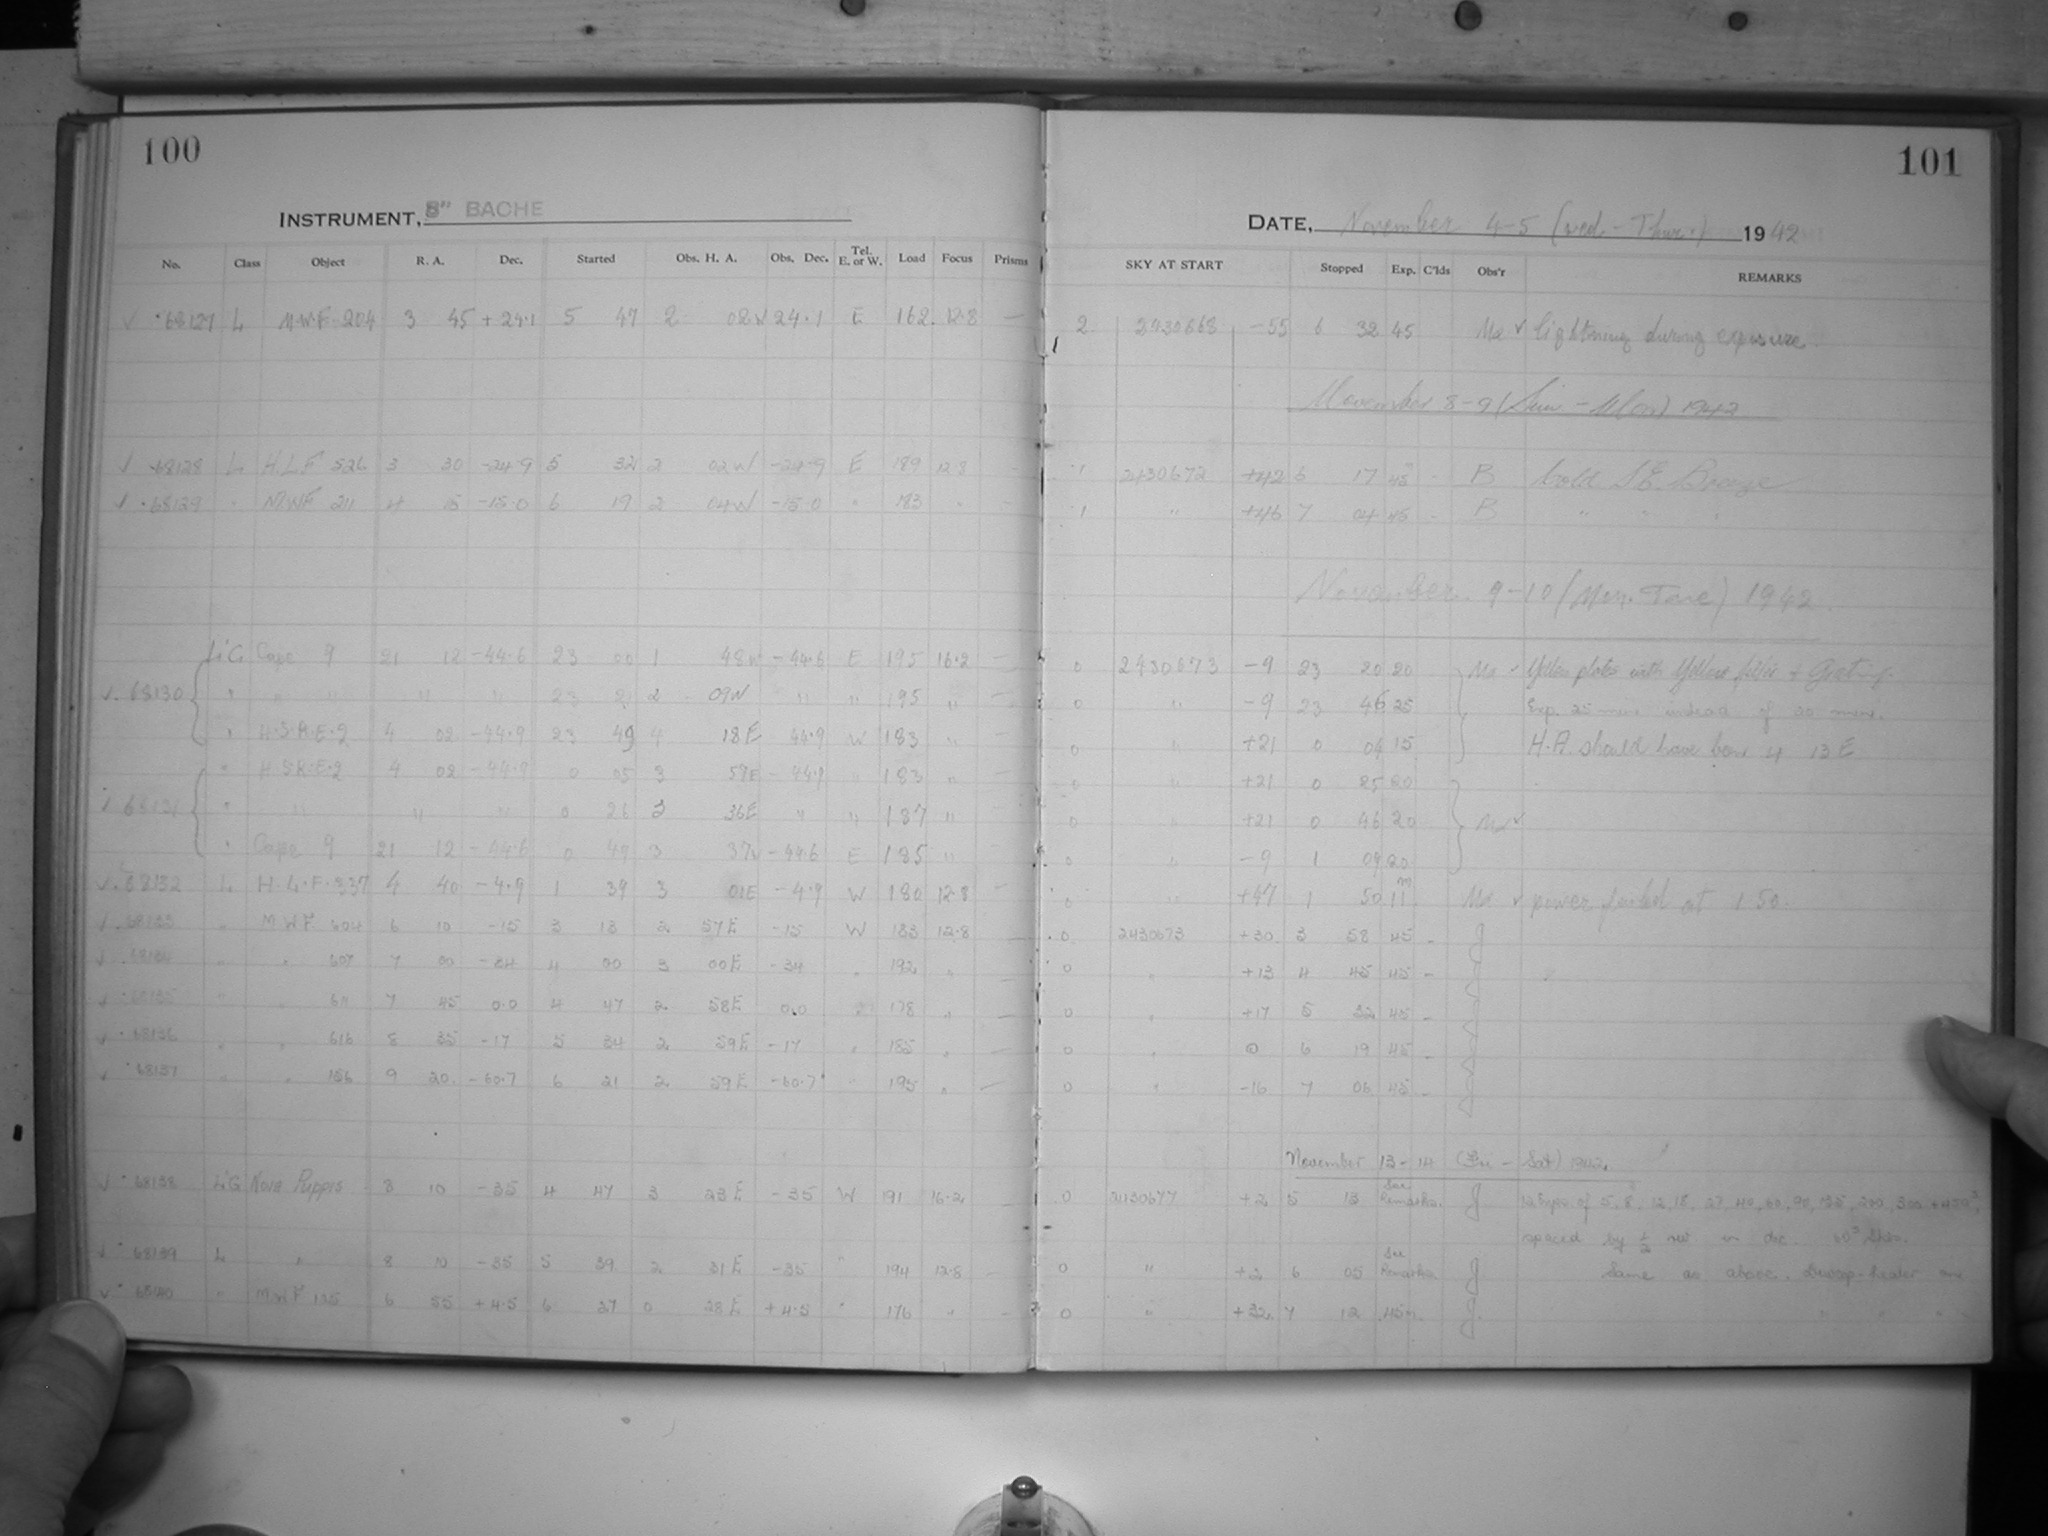 100
INSTRUMENT, 8" BACHE
No. Class Object R. A. Dec. Started Obs. H. A. Obs. Dec. Tel. E. or W. Load Focus Prisms
68127 L M.W.F. 204 3 45 +24.1 5 47 2 02W 24.1 E 162 12.8 —
68128 L H.L.F 526 3 30 -24.9 5 32 2 02W -24.9 E 189 12.8 —
68129 " MWF 211 4 15 -15.0 6 19 2 04W -15.0 " 183 " —
L'G Cape 9 21 12 -44.6 23 00 1 48W -44.6 E 195 16.2 —
68130 " " " " " 23 21 2 09W " " 195 " —
" H.S.R.E.2 4 02 -44.9 23 49 4 18E 44.9 W 183 " —
" H.S.R.E.2 4 02 -44.9 0 05 3 59E -44.9 " 183 "
68131 " " " " 0 26 3 36E " " 187 " —
" Cape 9 21 12 -44.6 0 49 3 37W -44.6 E 185 " —
68132 L H.L.F. 337 4 40 -4.9 1 39 3 01E -4.9 W 180 12.8 —
68133 " MWF 604 6 10 -15 3 13 2 57E -15 W 183 12.8 —
68134 " " 607 7 00 -34 4 00 3 00E -34 " 192 " —
68135 " " 611 7 45 0.0 4 47 2 58E 0.0 " 178 " —
68136 " " 616 8 35 -17 5 34 2 59E -17 " 185 " —
68137 " " 156 9 20 -60.7 6 21 2 59E -60.7 " 195 " —
68138 L'G Nova Puppis 8 10 -35 4 47 3 23E -35 W 191 16.2 —
68139 L " 8 10 -35 5 39 2 31E -35 " 194 12.8 —
68140 " MWF 135 6 55 +4.5 6 27 0 28E +4.5 " 176 " —
101
DATE, November 4-5 (Wed.-Thur.) 1942
SKY AT START Stopped Exp. C'lds Obs'r REMARKS
2 2430668 -55 6 32 45 Ma lightning during exposure.
November 8-9 (Sun.-Mon) 1942
1 2430672 +42 6 17 45 - B Cold S.E. Breeze
1 " +46 7 04 45 - B " " "
November 9-10 (Mon.-Tue) 1942
0 2430673 -9 23 20 20 Ma Yellow plates with Yellow filter + Grating.
0 " -9 23 46 25 Exp. 25 mins instead of 20 mins.
0 " +21 0 04 15 H.A. should have been 4 13 E
0 " +21 0 25 20
0 " +21 0 46 20 Ma
0 " -9 1 09 20
0 " +47 1 50 11m Ma power failed at 1.50.
0 2430673 +30 3 58 45 - J
0 " +13 4 45 45 - J
0 " +17 5 32 45 - J
0 " 0 6 19 45 - J
0 " -16 7 06 45 - J
November 13-14 (Fri-Sat) 1942.
0 2430677 +2 5 13 See Remarks. J 12 Exps of 5, 8, 12, 18, 27, 40, 60, 90, 135, 200, 300 + 450s,
spaced by ½ rev. in dec.
0 " +2 6 05 See Remarks J Same as above. Dewcap-heater on
0 " +32 7 12 45m J " " "